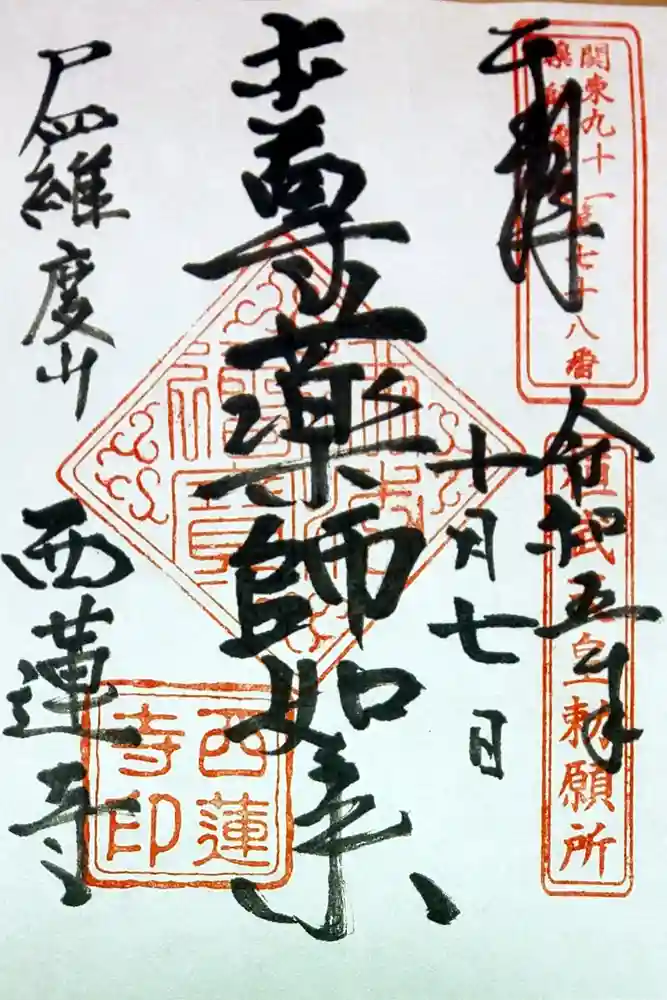 奉拝
関東九十一第七十八番
桓武天皇勅願所
令和五年
十月七日
本尊薬師如来
西蓮
寺印
尸羅度山
西蓮寺